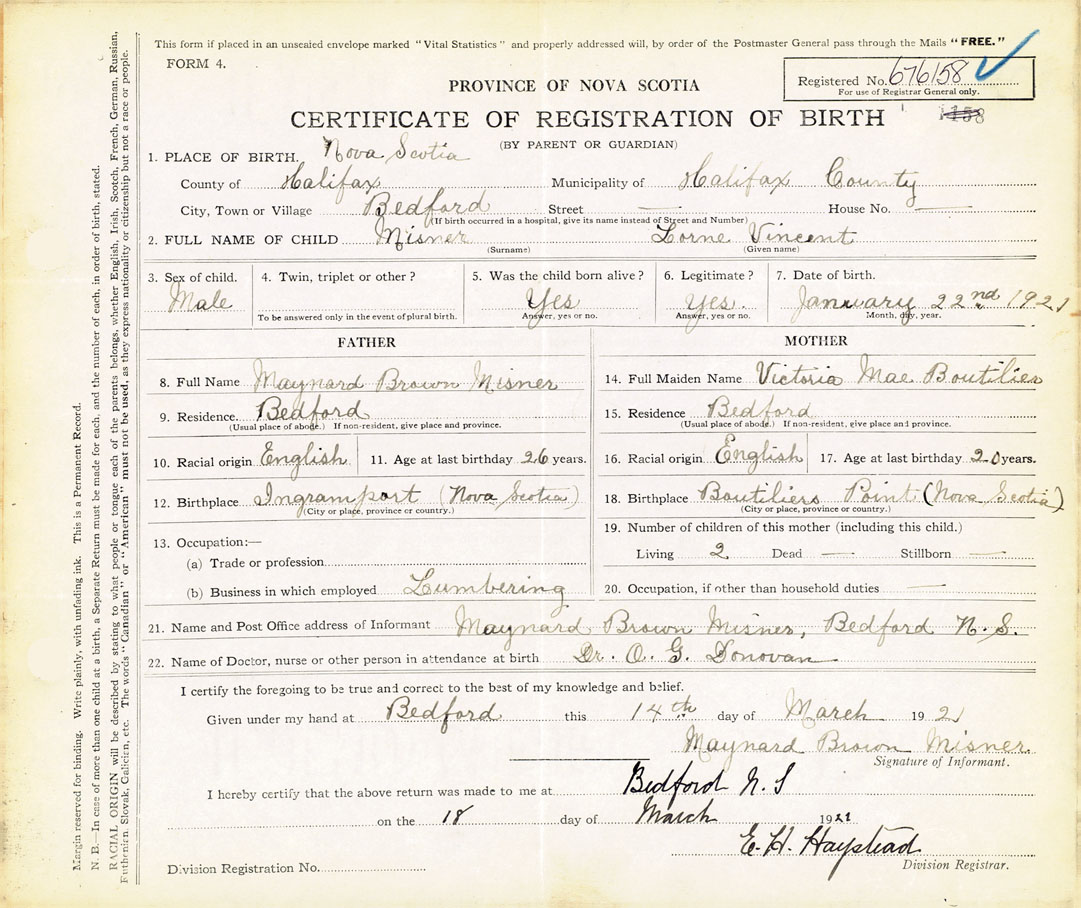 This form if placed in an unsealed envelope marked "Vital Statistics" and properly addressed will, by order of the Postmaster General pass through the Mails "FREE."
FORM 4.
Registered No. 676158
For use of Registrar General only.
PROVINCE OF NOVA SCOTIA
CERTIFICATE OF REGISTRATION OF BIRTH
(BY PARENT OR GUARDIAN)
1. PLACE OF BIRTH. Nova Scotia
County of Halifax Municipality of Halifax County
City, Town or Village Bedford Street — House No. —
(If birth occurred in a hospital, give its name instead of Street and Number)
2. FULL NAME OF CHILD Misner Lorne Vincent
(Surname) (Given name)
3. Sex of child. 4. Twin, triplet or other? 5. Was the child born alive? 6. Legitimate? 7. Date of birth.
Male Yes Yes. January 22nd 1921
To be answered only in the event of plural birth. Answer, yes or no. Answer, yes or no. Month, day, year.
FATHER
8. Full Name Maynard Brown Misner
9. Residence. Bedford
(Usual place of abode.) If non-resident, give place and province.
10. Racial origin English 11. Age at last birthday 26 years.
12. Birthplace Ingramport (Nova Scotia)
(City or place, province or country.)
13. Occupation:—
(a) Trade or profession
(b) Business in which employed Lumbering
MOTHER
14. Full Maiden Name Victoria Mae Boutilier
15. Residence Bedford
(Usual place of abode.) If non-resident, give place and province.
16. Racial origin English 17. Age at last birthday 20 years.
18. Birthplace Boutiliers Point (Nova Scotia)
(City or place, province or country.)
19. Number of children of this mother (including this child.)
Living 2 Dead — Stillborn —
20. Occupation, if other than household duties —
21. Name and Post Office address of Informant Maynard Brown Misner, Bedford N.S.
22. Name of Doctor, nurse or other person in attendance at birth Dr. O. G. Donovan
I certify the foregoing to be true and correct to the best of my knowledge and belief.
Given under my hand at Bedford this 14th day of March 1921
Maynard Brown Misner.
Signature of Informant.
I hereby certify that the above return was made to me at Bedford N. S
on the 18 day of March 1921
E. H. Haystead
Division Registrar.
Division Registration No.
Margin reserved for binding. Write plainly, with unfading ink. This is a Permanent Record.
N. B.—In case of more than one child at a birth, a Separate Return must be made for each, and the number of each, in order of birth, stated.
RACIAL ORIGIN will be described by stating to what people or tongue each of the parents belongs, whether English, Irish, Scotch, French, German, Russian,
Ruthenian, Slovak, Galicien, etc. The words "Canadian" or "American" must not be used, as they express nationality or citizenship but not a race or people.